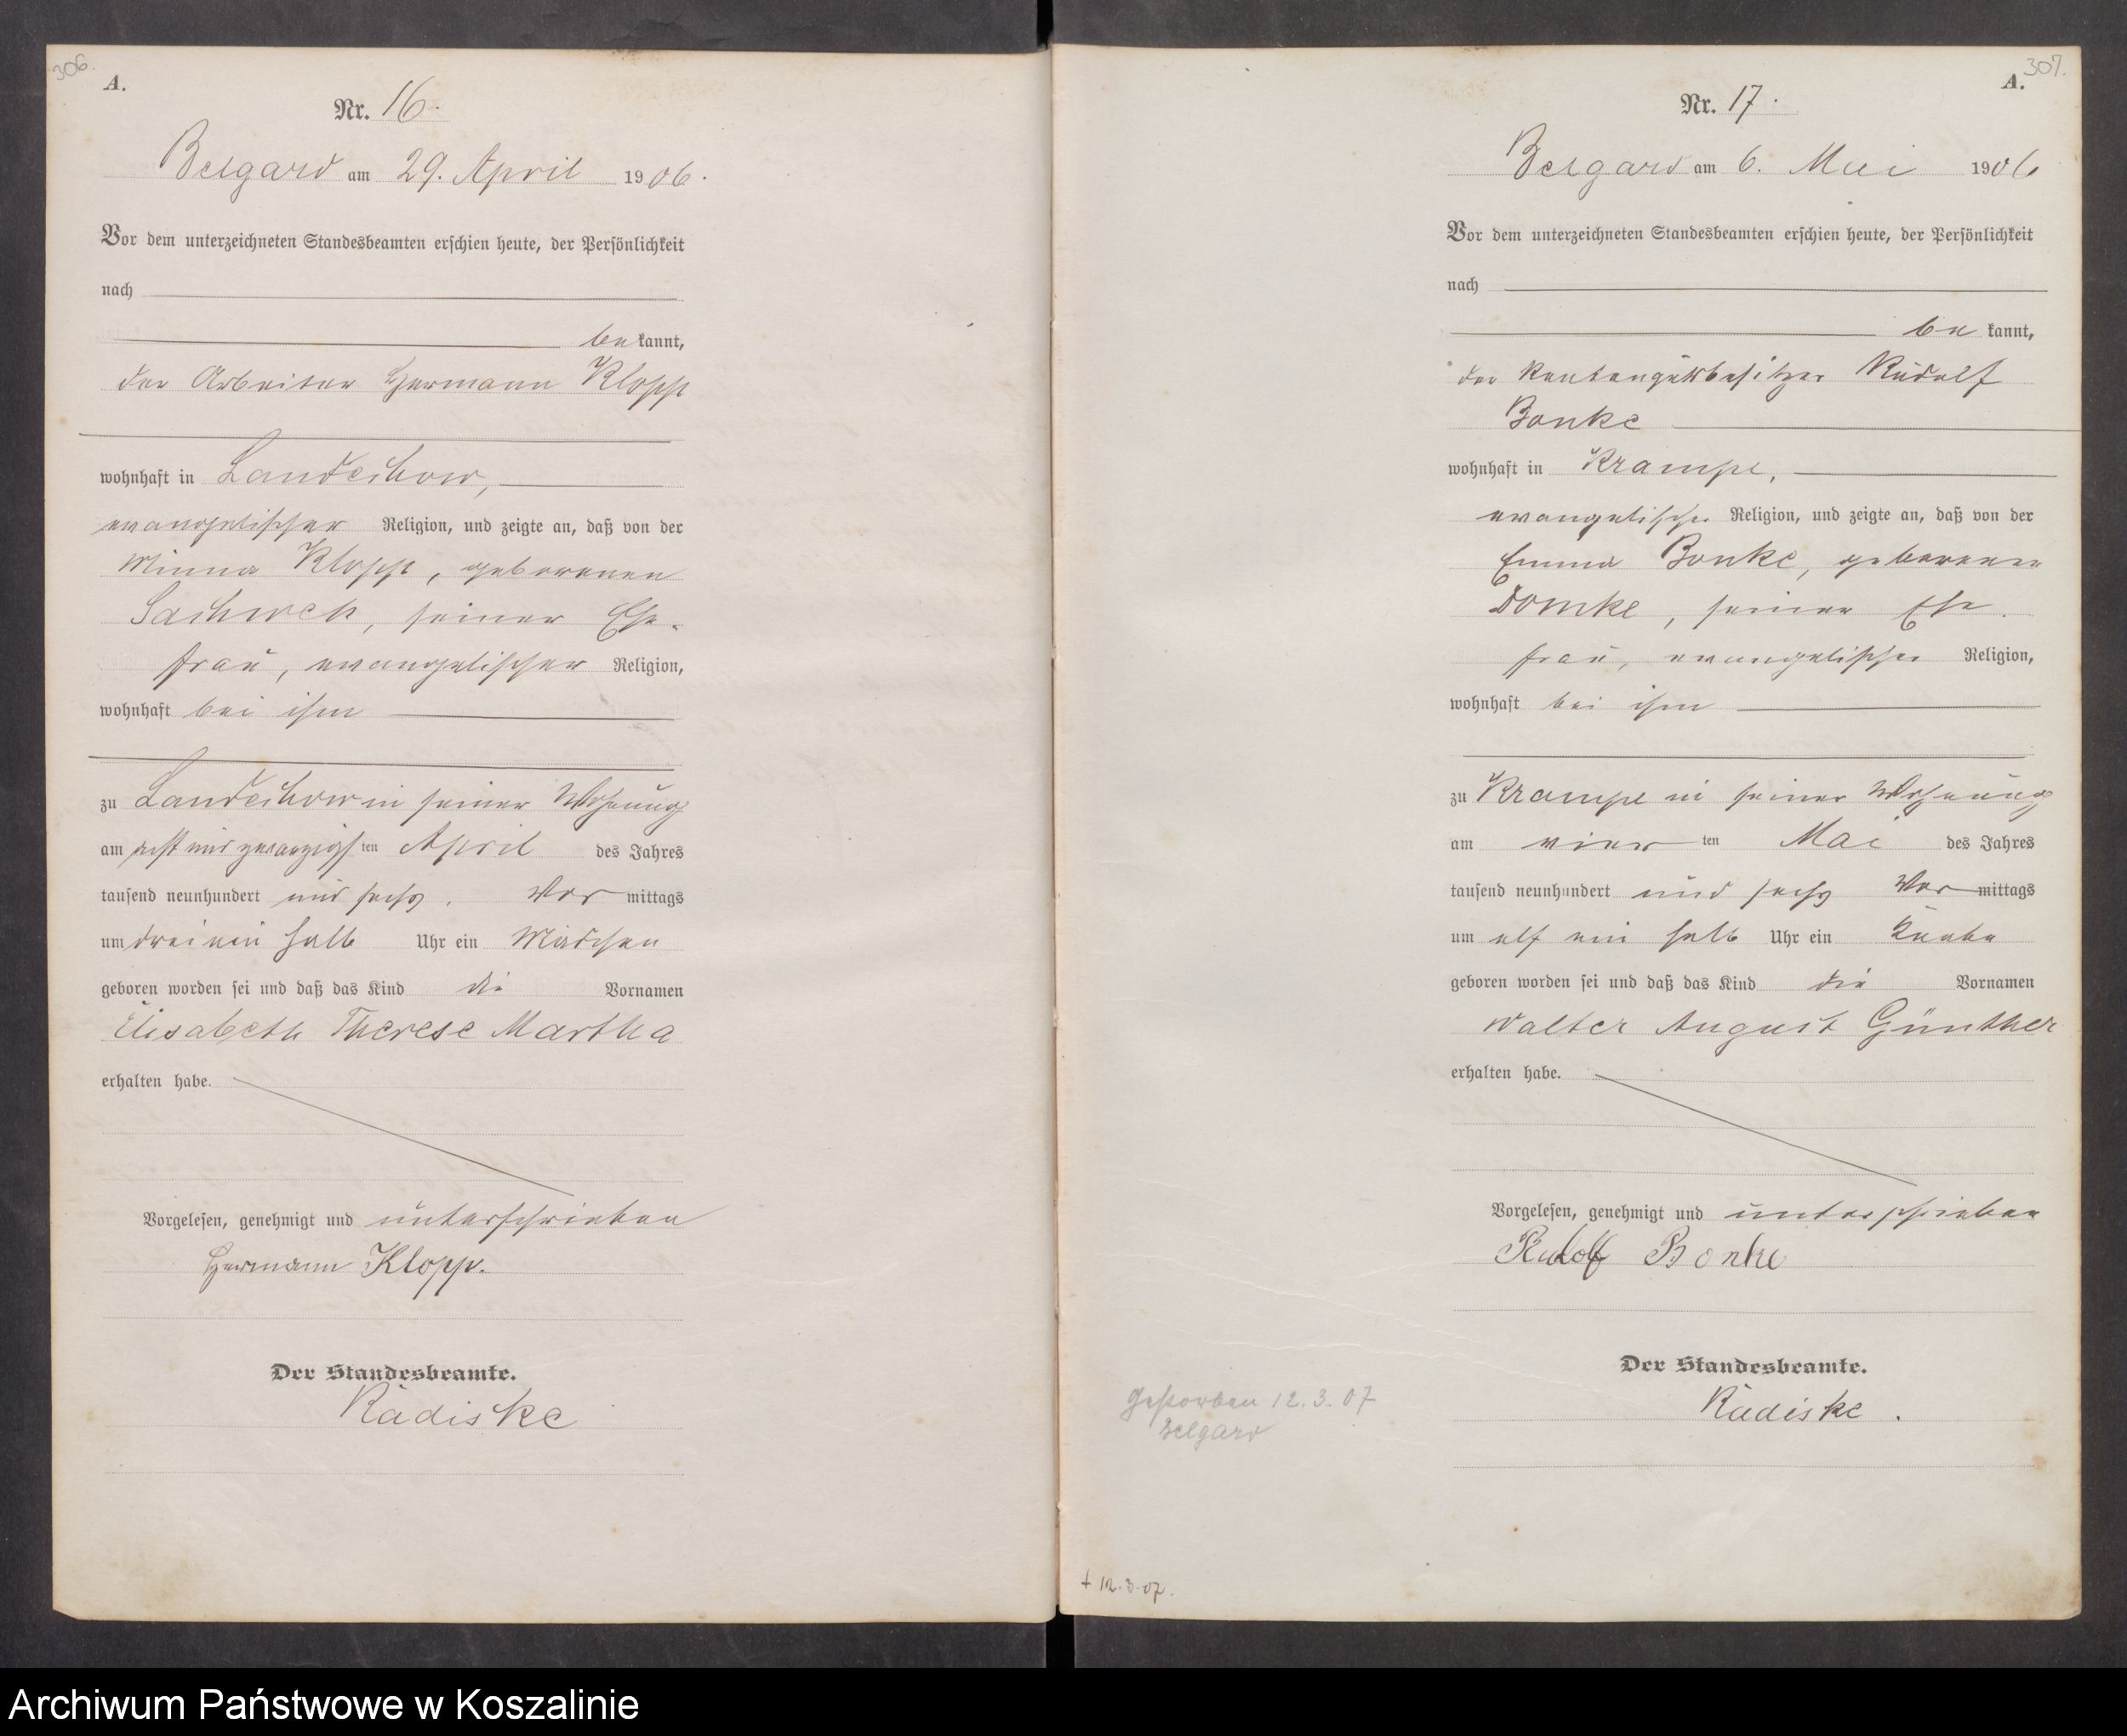 306.
A.
Nr. 16.
Belgard am 29. April 1906.
Vor dem unterzeichneten Standesbeamten erschien heute, der Persönlichkeit
nach
be kannt,
der Arbeiter Hermann Klopp
wohnhaft in Landechow,
evangelischer Religion, und zeigte an, daß von der
Minna Klopp, geborenen
Sachweh, seiner Ehe-
frau, evangelischer Religion,
wohnhaft bei ihm
zu Landechow in seiner Wohnung
am acht und zwanzigsten April des Jahres
tausend neunhundert und sechs, Vor mittags
um drei ein halb Uhr ein Mädchen
geboren worden sei und daß das Kind die Vornamen
Elisabeth Therese Martha
erhalten habe.
Vorgelesen, genehmigt und unterschrieben
Hermann Klopp.
Der Standesbeamte.
Radiske
307.
A.
Nr. 17.
Belgard am 6. Mai 1906
Vor dem unterzeichneten Standesbeamten erschien heute, der Persönlichkeit
nach
be kannt,
der Rentengutsbesitzer Rudolf
Bonke
wohnhaft in Krampe,
evangelischer Religion, und zeigte an, daß von der
Emma Bonke, geborenen
Domke, seiner Ehe-
frau, evangelischer Religion,
wohnhaft bei ihm
zu Krampe in seiner Wohnung
am vier ten Mai des Jahres
tausend neunhundert und sechs Vor mittags
um elf ein halb Uhr ein Knabe
geboren worden sei und daß das Kind die Vornamen
Walter August Günther
erhalten habe.
Vorgelesen, genehmigt und unterschrieben
Rudolf Bonke
Der Standesbeamte.
Radiske.
Gestorben 12.3.07
Belgard
† 12.3.07.
Archiwum Państwowe w Koszalinie